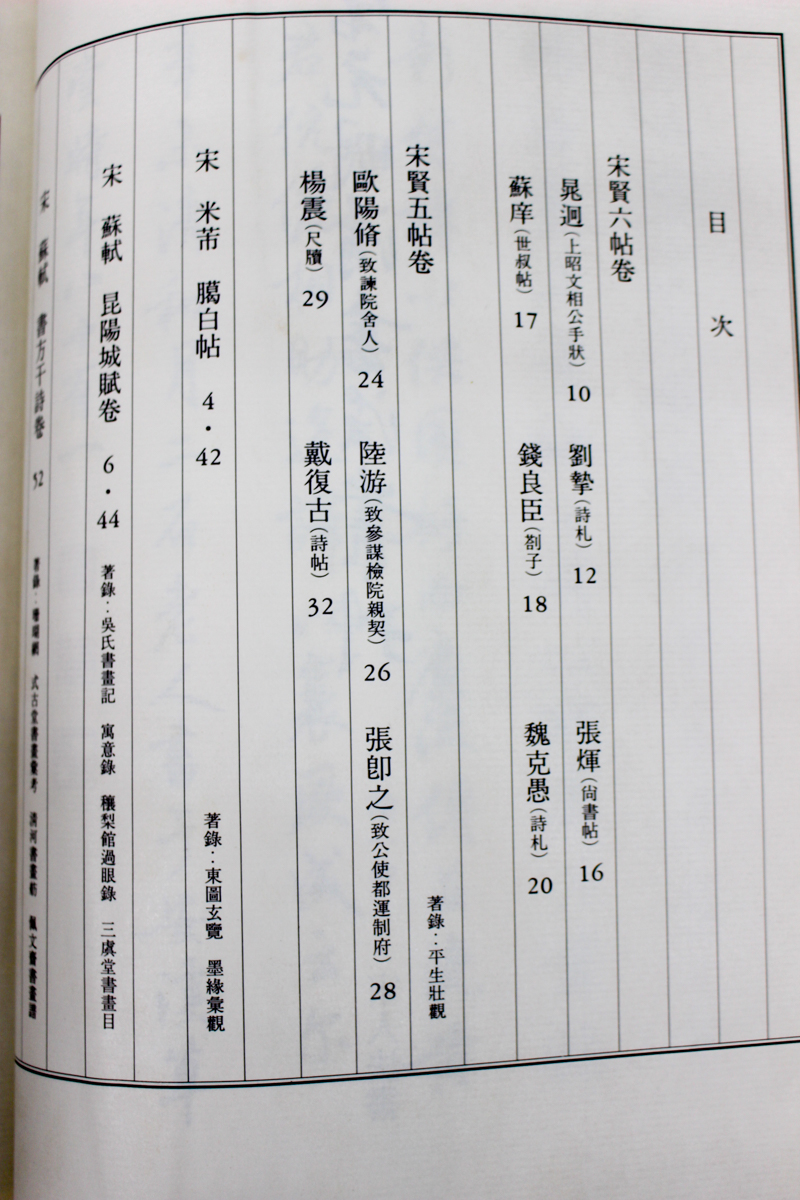 目次
宋賢六帖卷
晁迥（上昭文相公手狀）10 劉摯（詩札）12 張煇（尙書帖）16
蘇庠（世叔帖）17 錢良臣（劄子）18 魏克愚（詩札）20
宋賢五帖卷 著錄：平生壯觀
歐陽脩（致諫院舍人）24 陸游（致參謀檢院親契）26 張卽之（致公使都運制府）28
楊震（尺牘）29 戴復古（詩帖）32
宋 米芾 臈白帖 4・42 著錄：東圖玄覽 墨緣彙觀
宋 蘇軾 昆陽城賦卷 6・44 著錄：吳氏書畫記 寓意錄 穰梨館過眼錄 三虞堂書畫目
宋 蘇軾 書方干詩卷 52 著錄：珊瑚網 式古堂書畫彙考 清河書畫舫 佩文齋書畫譜